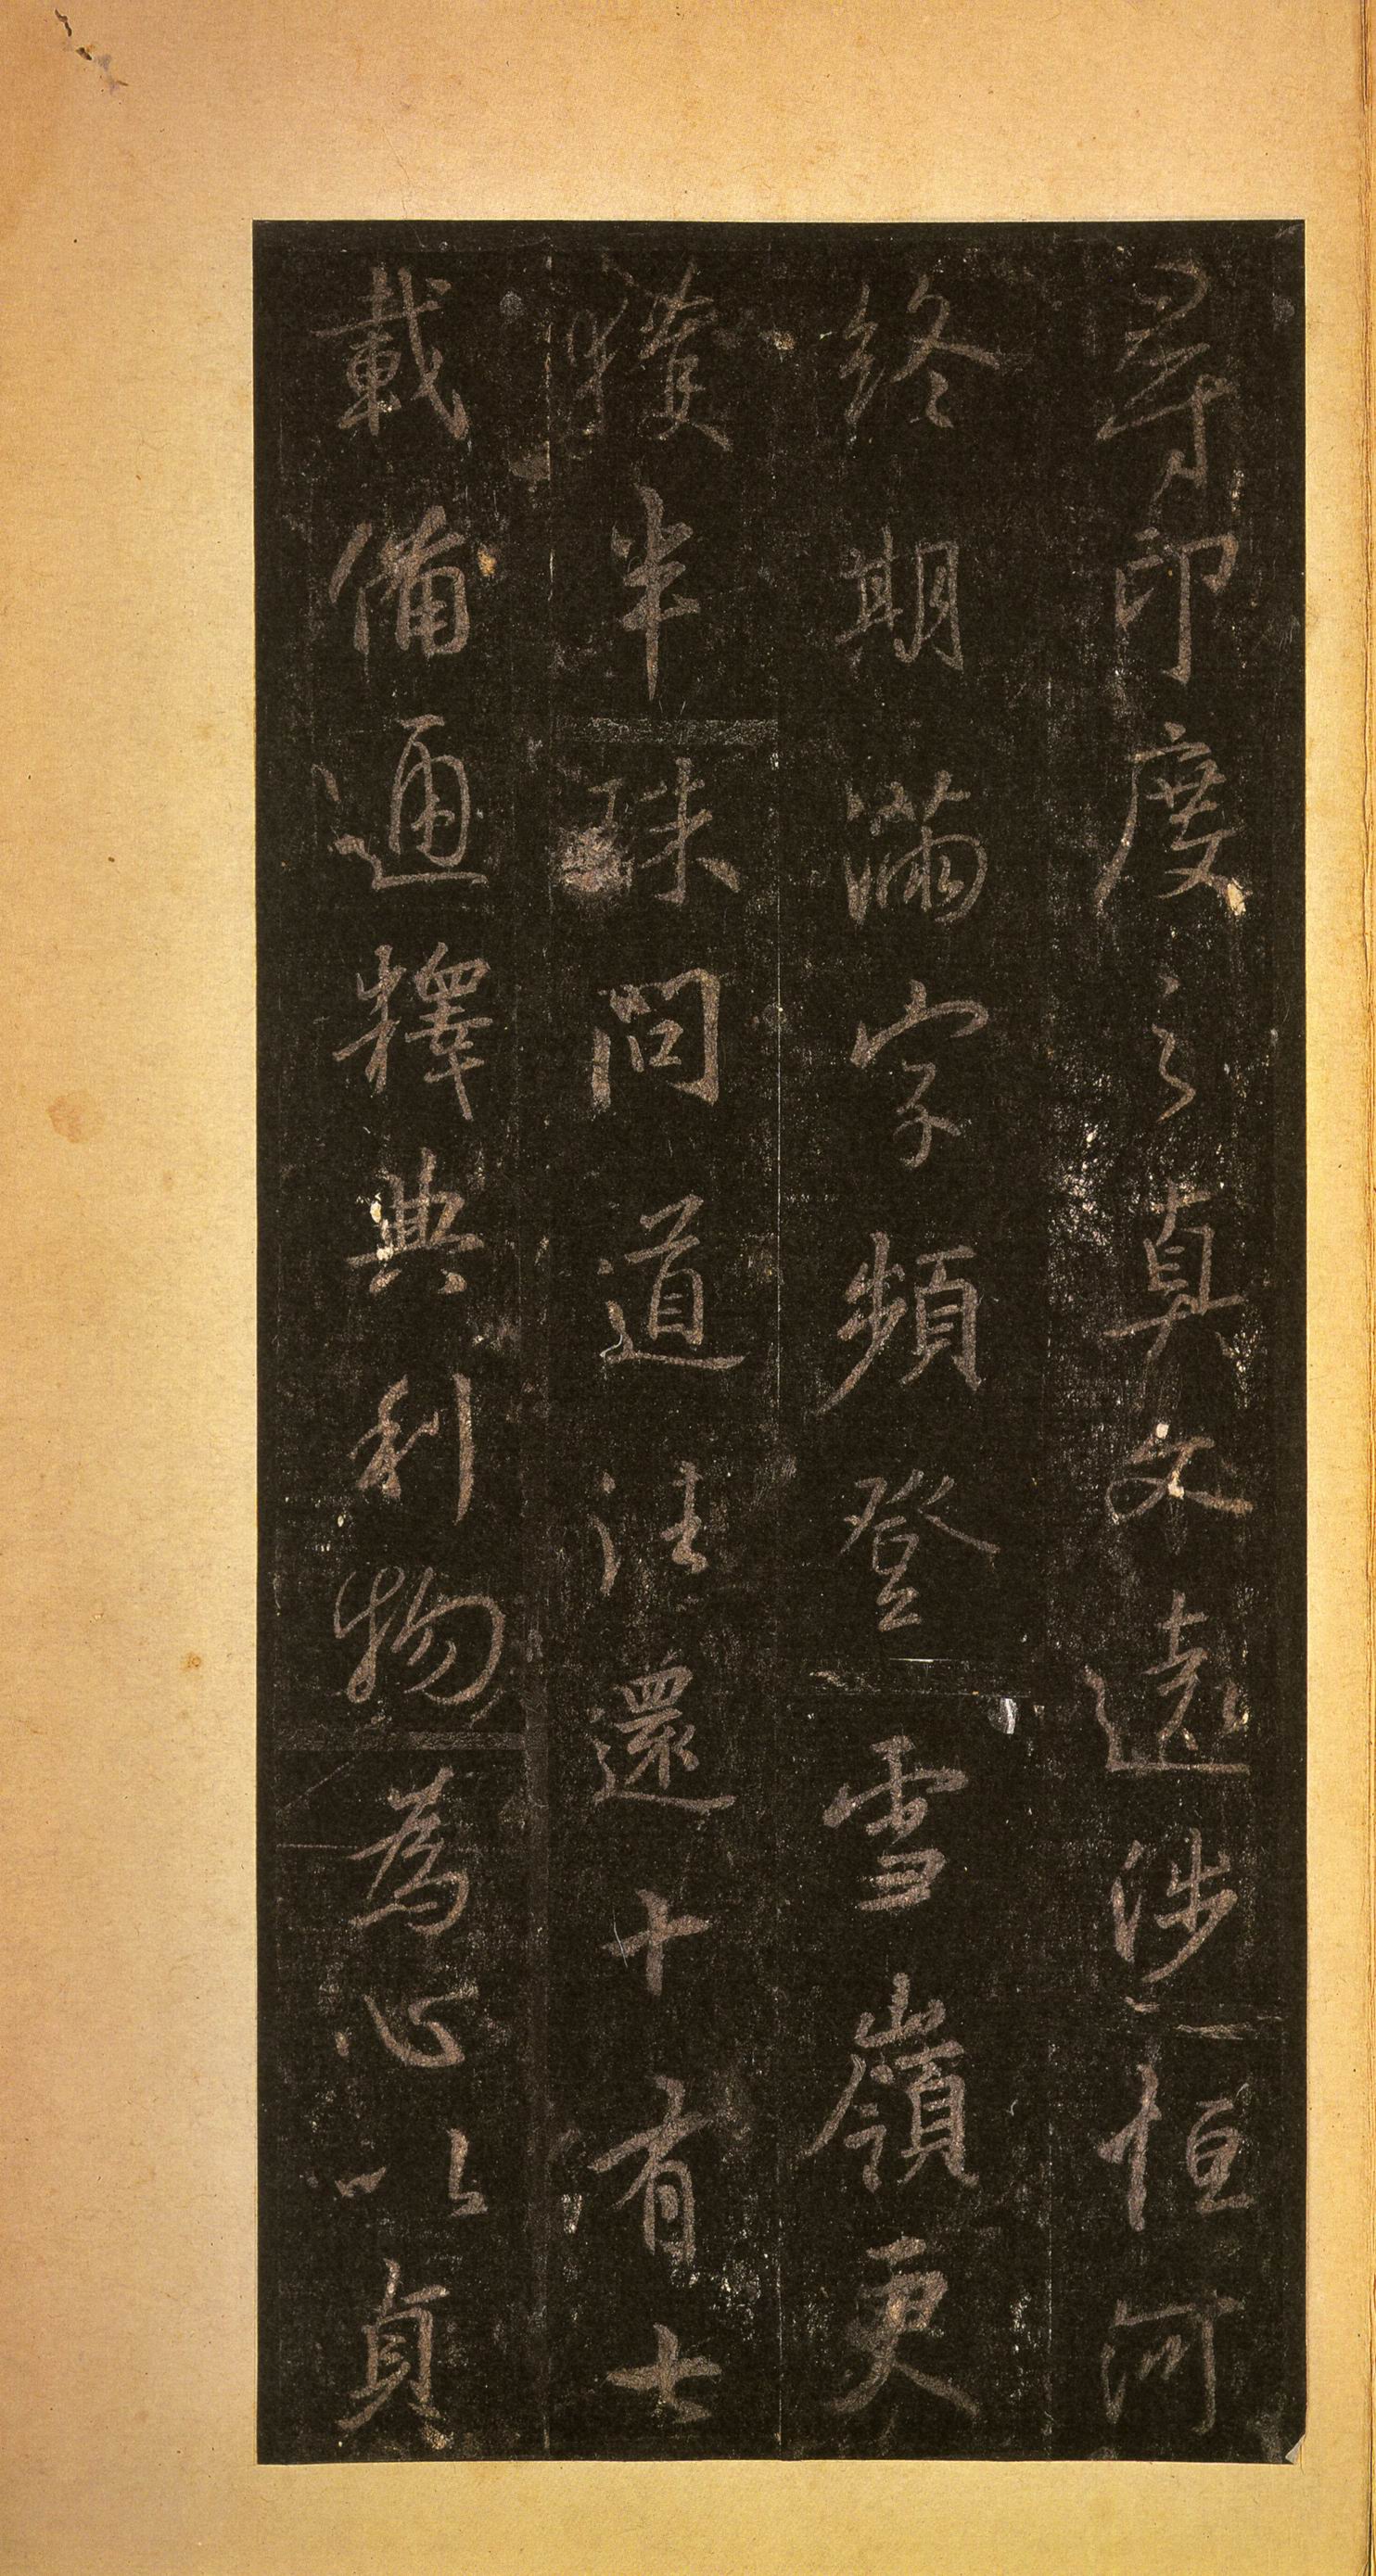 尋印度之真文遠涉恒河
終期滿字頻登雪嶺更
獲半珠問道法還十有七
載備通釋典利物為心以貞